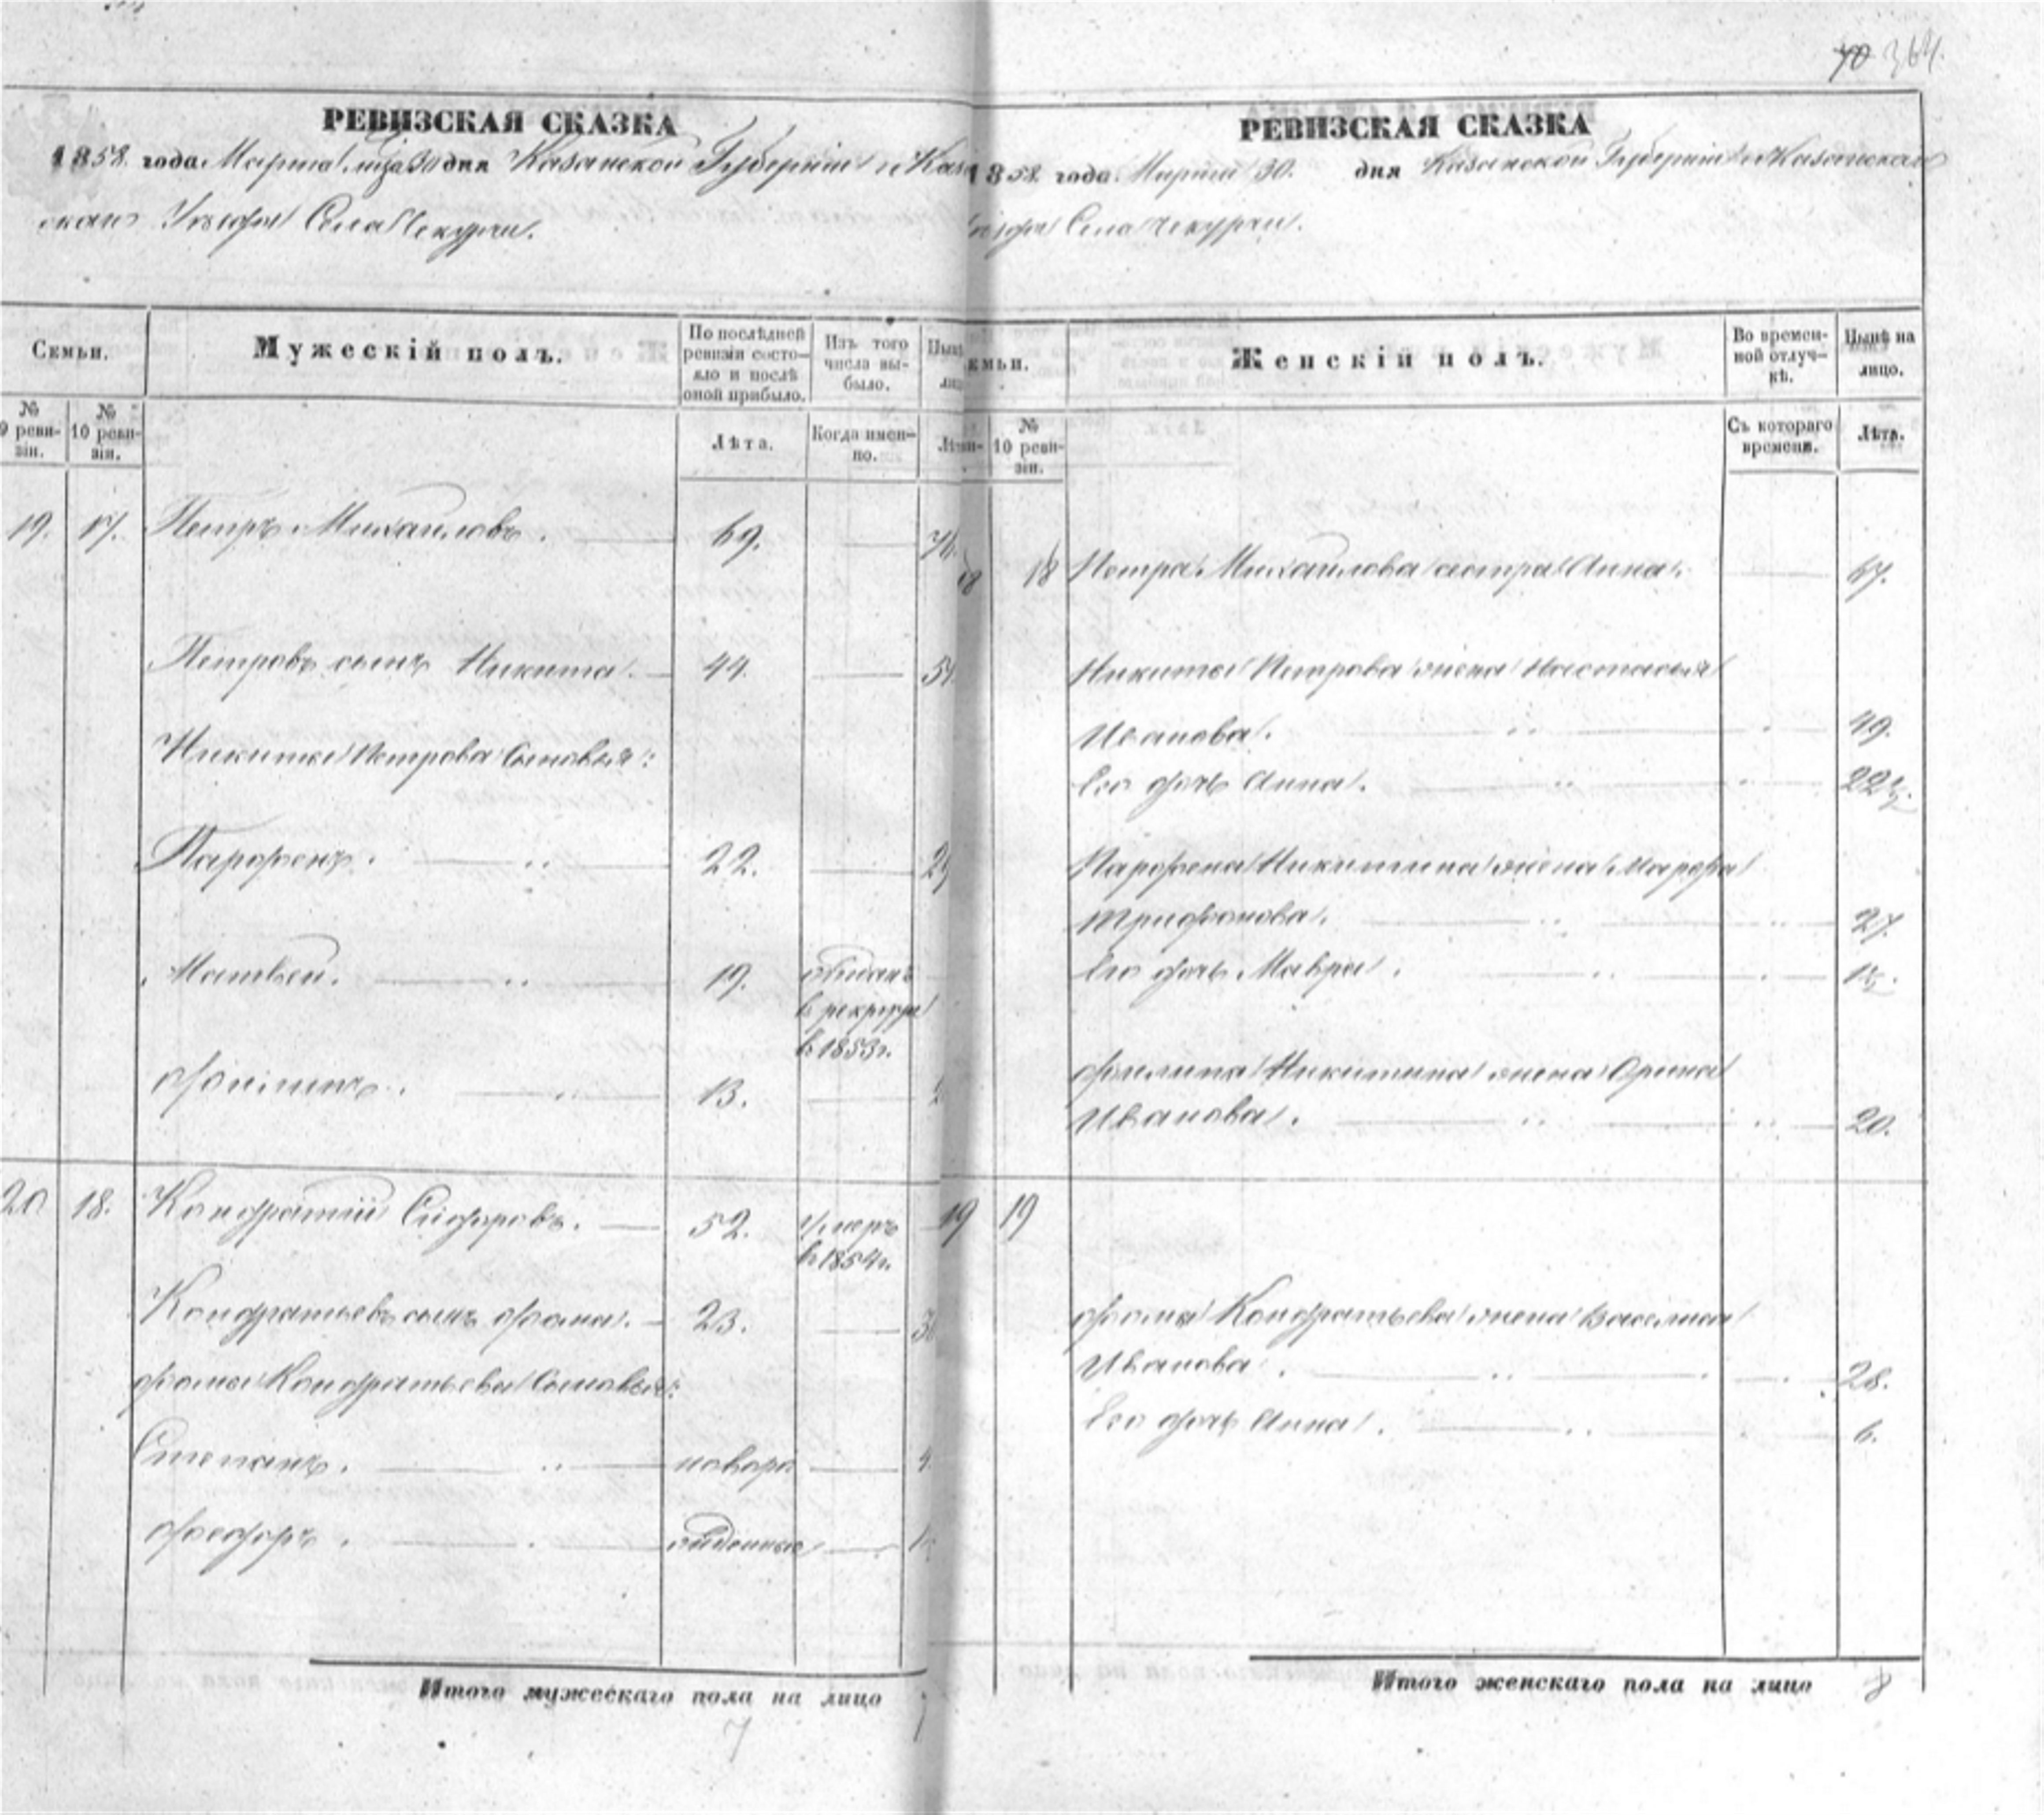 70 364.
РЕВИЗСКАЯ СКАЗКА
1858. года Марта мца 30 дня Казанской Губернии Каза
скаго Уезда Села Чекурчи.
Семьи.
Мужескій полъ.
По послѣдней ревизіи состояло и послѣ оной прибыло.
Изъ того числа выбыло.
Нынѣ
№ 9 ревизіи.
№ 10 ревизіи.
Лѣта.
Когда именно.
Лѣта
19. 17. Петръ Михайловъ. 69. 76.
Петровъ сынъ Никита. 44. 51.
Никиты Петрова Сыновья:
Парфенъ. 22. 29
Матвей. 19. отданъ
в рекруты
в 1853 г.
Филипъ. 13.
20 18. Кондратій Сидоровъ. 52. умеръ
в 1854 г.
Кондратьевъ сынъ Фома. 23. 30
Фомы Кондратьева Сыновья:
Степанъ. новоро 4.
Федоръ. жденные
Итого мужескаго пола на лицо 7
7
РЕВИЗСКАЯ СКАЗКА
1858 года. Марта 30. дня Казанской Губернии Казанскаго
уезда Села Чекурчи.
Семьи.
Женскій полъ.
Во временной отлучкѣ.
Нынѣ на лицо.
№ 10 ревизіи.
Съ котораго времени.
Лѣта.
18 18 Петра Михайлова сестра Анна. 67.
Никиты Петрова жена Настасья
Иванова. 49.
Его дочь Анна. 22½.
Парфена Никитина жена Марфа
Трифонова. 27.
Его дочь Мавра.
Филипа Никитина жена Орина
Иванова. 20.
19 19
Фомы Кондратьева жена Василиса
Иванова. 28.
Его дочь Анна. 6.
Итого женскаго пола на лицо 8